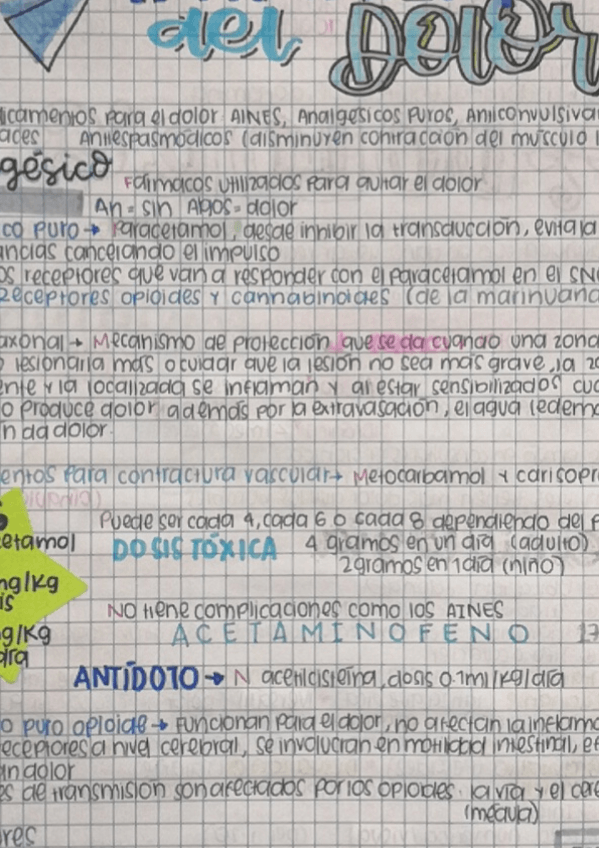 del Dolor
icamentos para el dolor AINES, Analgésicos Puros, Anticonvulsiva
aces Antiespasmódicos (disminuyen contracción del musculo l
gésico Fármacos utilizados para quitar el dolor
An = sin Algos = dolor
co puro → Paracetamol, desde inhibir la transducción, evita la
ancias cancelando el impulso
os receptores que van a responder con el paracetamol en el SN
Receptores opioides y cannabinoides (de la marihuana
axonal → Mecanismo de protección que se da cuando una zona
lesionarla más o cuidar que la lesión no sea más grave, la zo
ente y la localizada se inflaman y al estar sensibilizados cua
o produce dolor además por la extravasación, el agua (edema
n da dolor.
entos para contractura vascular → Metocarbamol y carisopr
Puede ser cada 4, cada 6 o cada 8 dependiendo del
etamol DOSIS TÓXICA 4 gramos en un día (adulto)
2gramos en 1 día (niño)
mg/kg
is
NO tiene complicaciones como los AINES
g/kg ACETAMINOFENO
día
ANTÍDOTO → N acetilcisteína, dosis 0.1ml/kg/día
o puro opioide → Funcionan para el dolor, no afectan la inflama
eceptores a nivel cerebral, se involucran en motilidad intestinal, ef
an dolor
es de transmisión son afectados por los opioides. la vía y el cere
(médula)
res